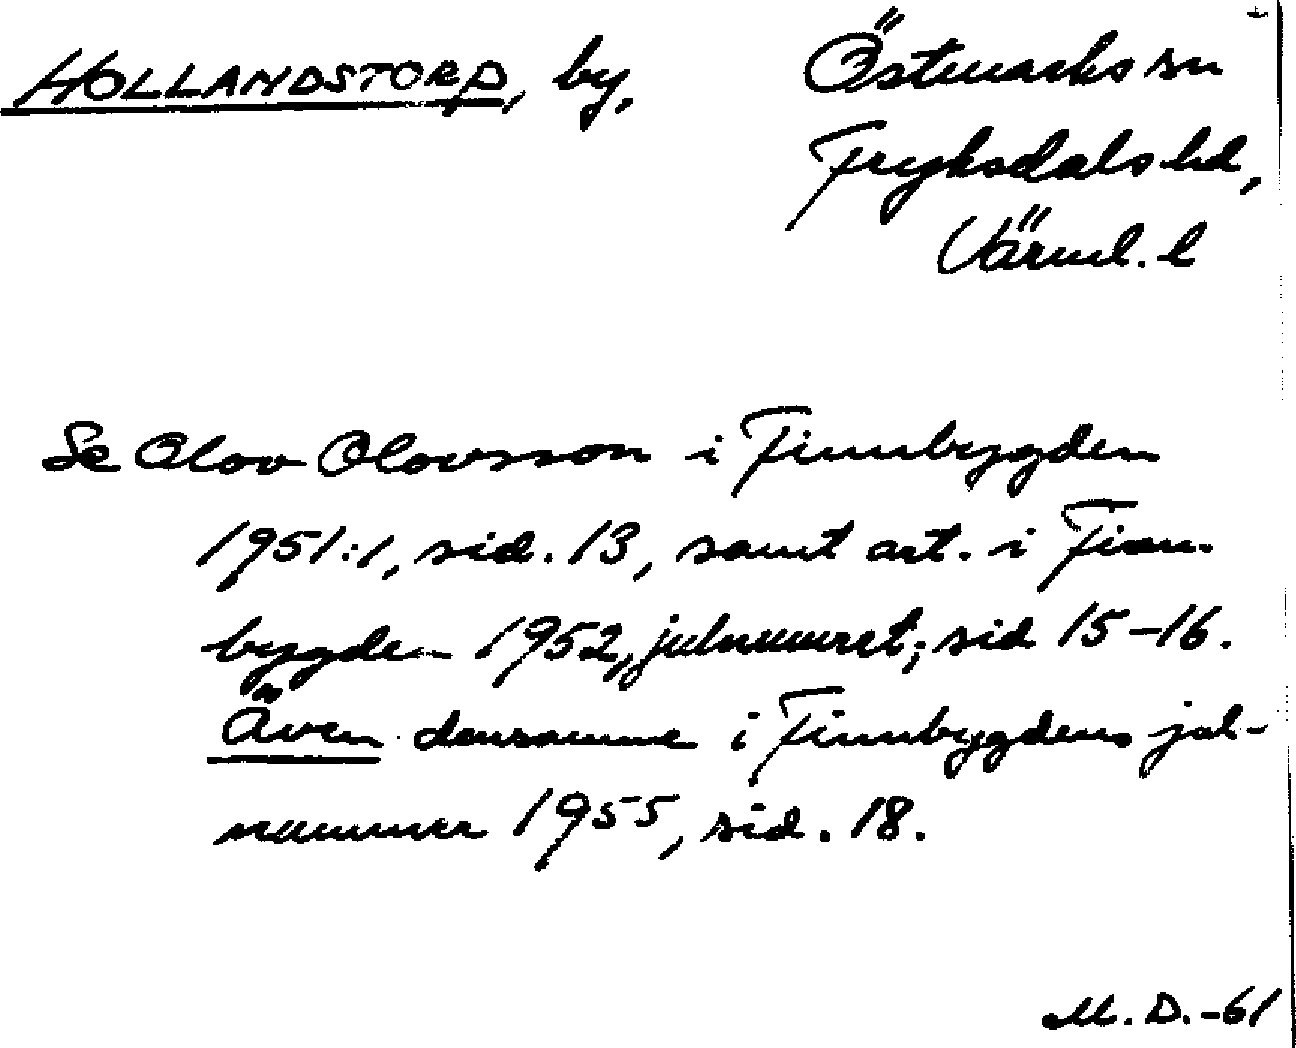 HOLLANDSTORP, by,
Östmarks sn
Fryksdals hd,
Värml. l
Se Olov Olovsson i Finnbygden
1951:1, sid. 13, samt art. i Finn-
bygden 1952, julnumret; sid 15-16.
Även densamme i Finnbygdens jul-
nummer 1955, sid. 18.
M. D. -61